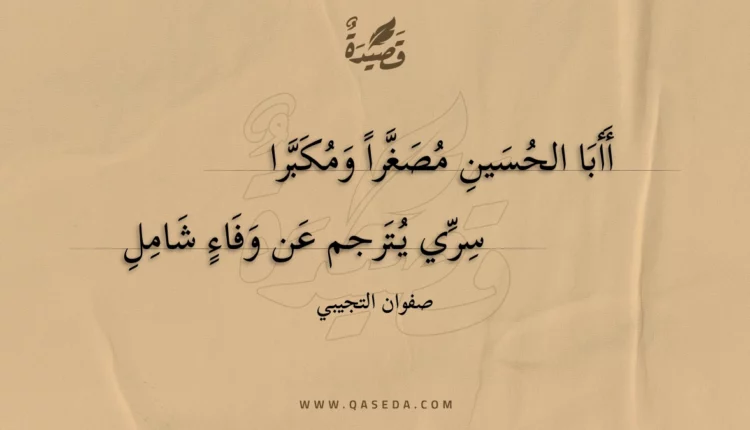 قَصِيدَةٌ
أَأَبَا الحُسَينِ مُصَغَّراً وَمُكَبَّرا
سِرِّي يُتَرجم عَن وَفَاءٍ شَامِلِ
صفوان التجيبي
WWW.QASEDA.COM